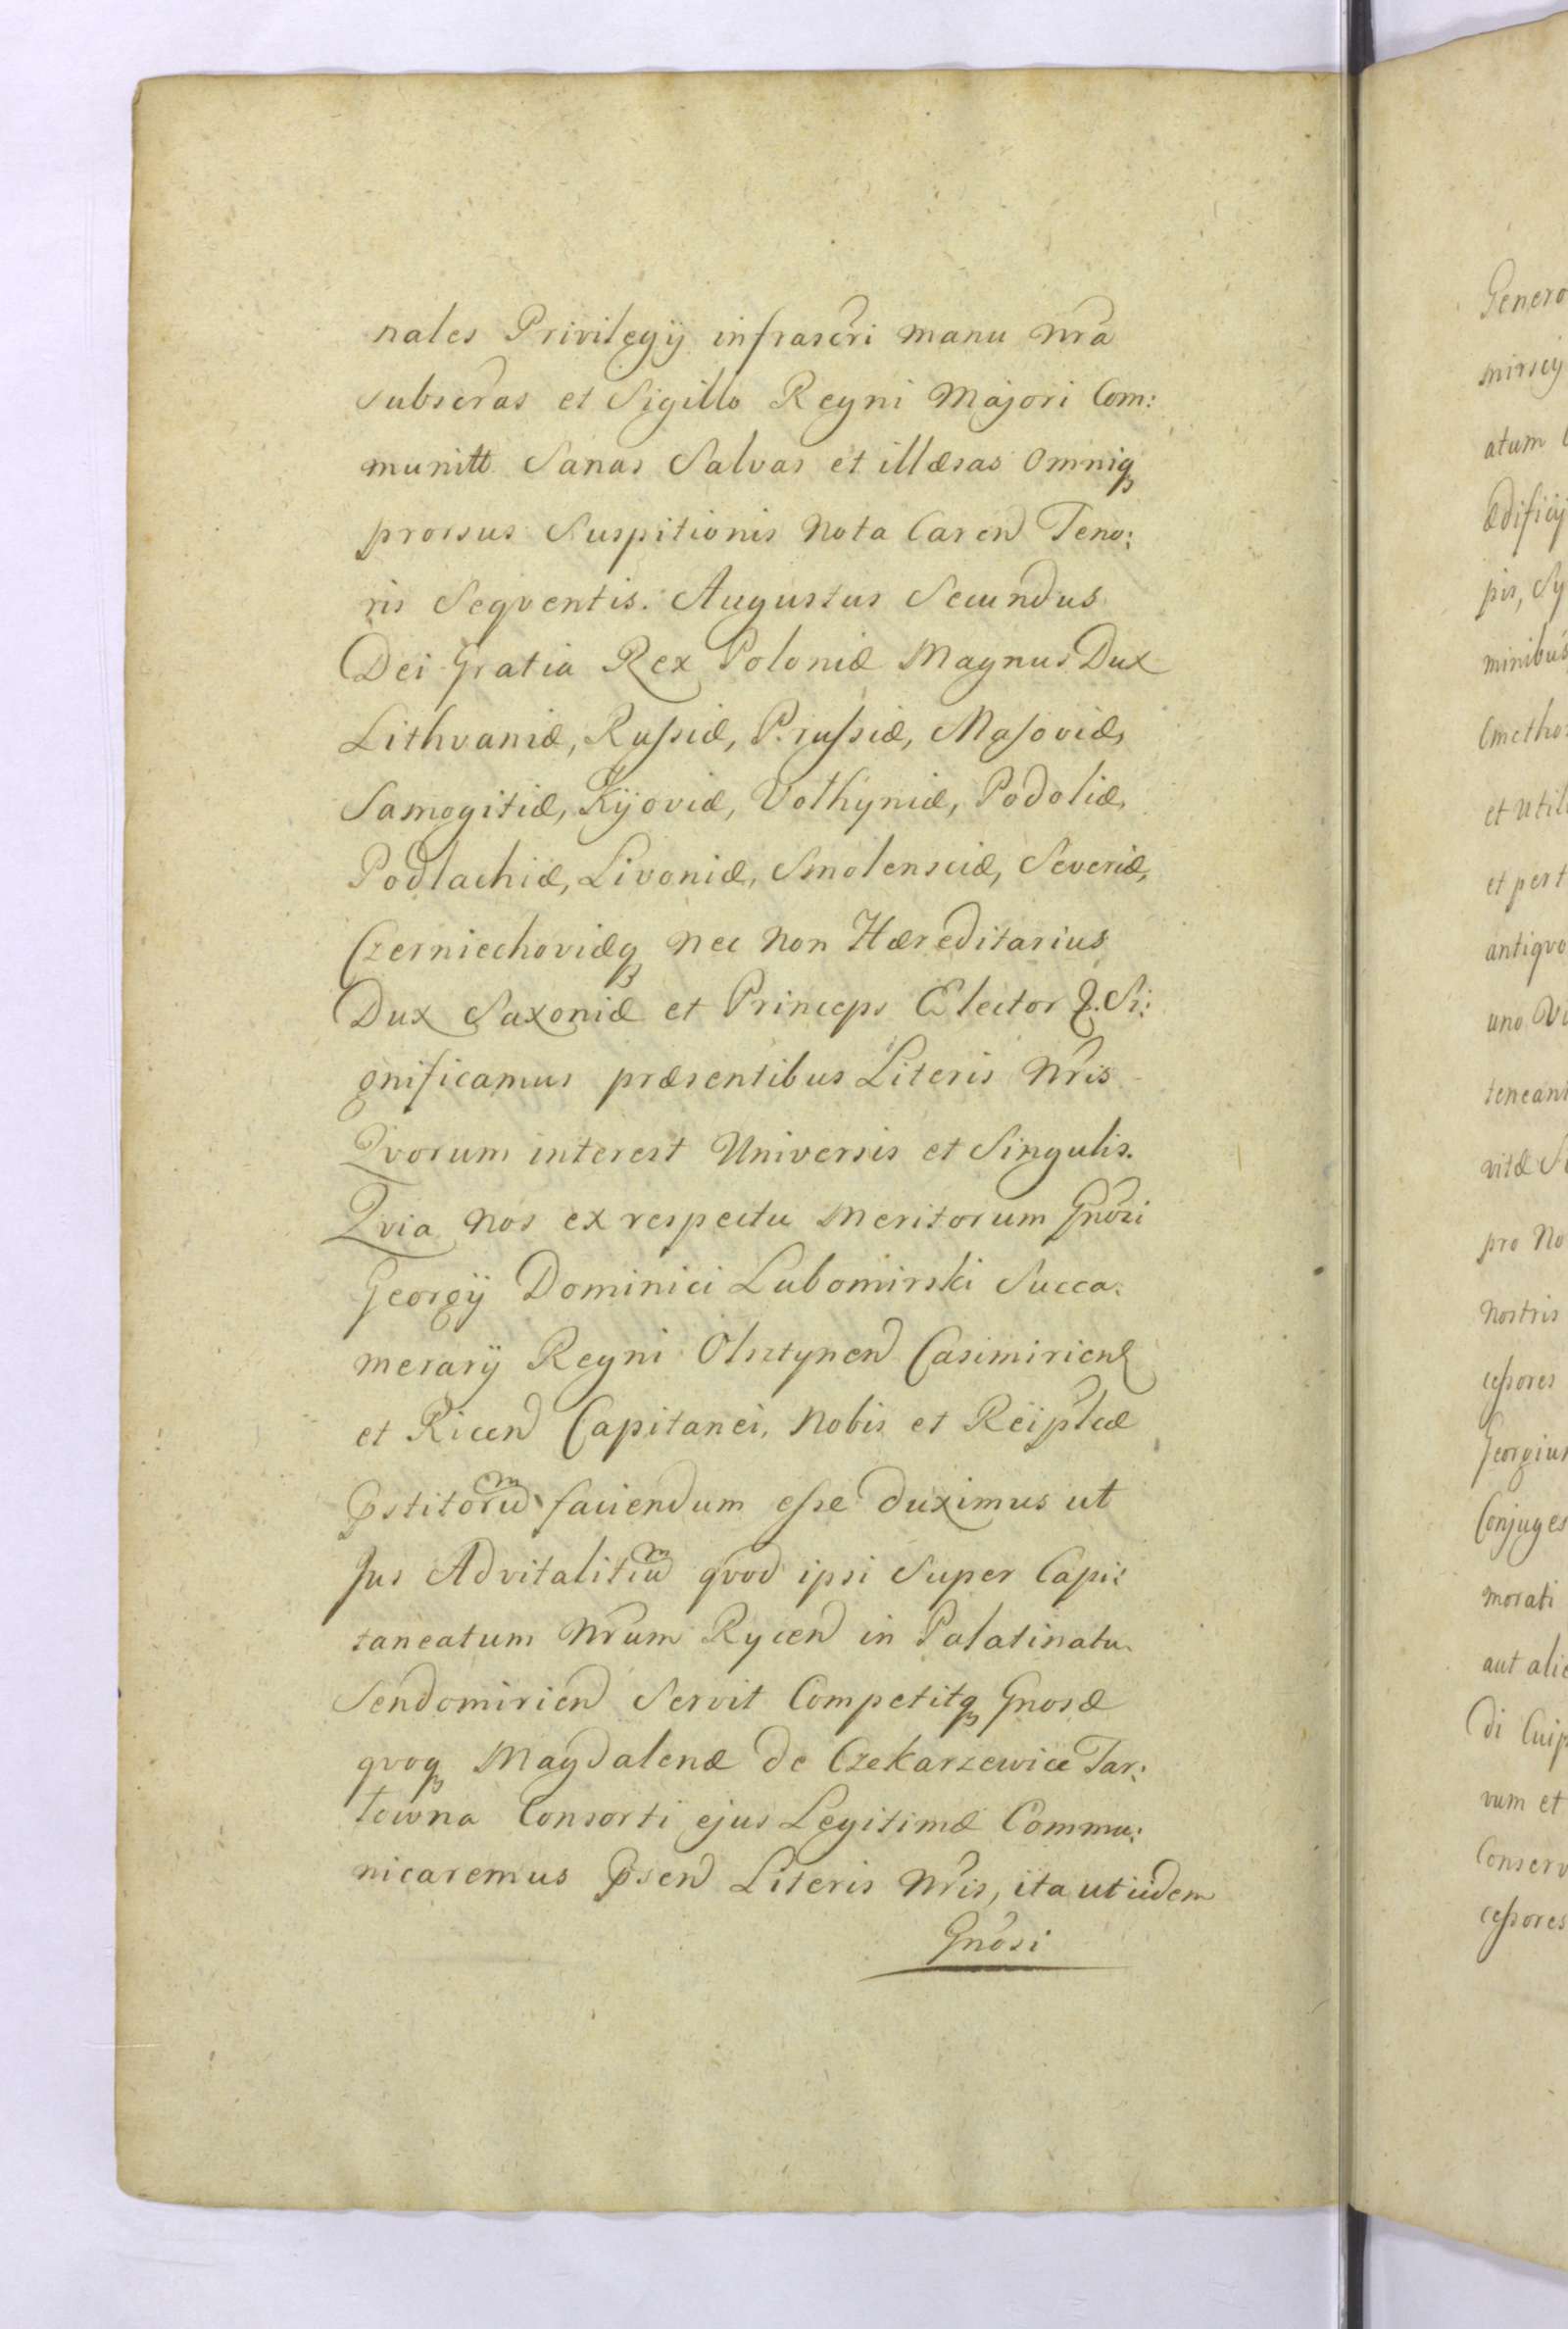 nales Privilegij infrascri manu nra
subscras et Sigillo Regni Majori Com:
munitt Sanas Salvas et illæsas Omniq
prorsus Suspitionis Nota Caren Teno:
ris Seqventis. Augustus Secundus
Dei Gratia Rex Poloniæ Magnus Dux
Lithvaniæ, Russiæ, Prussiæ, Masoviæ,
Samogitiæ, Kijoviæ, Volhyniæ, Podoliæ,
Podlachiæ, Livoniæ, Smolensciæ, Severiæ,
Czerniechoviæq nec non Hæreditarius
Dux Saxoniæ et Princeps Elector &. Si:
gnificamus præsentibus Literis Nris
Qvorum interest Universis et Singulis.
Qvia nos ex respectu Meritorum Gnosi
Georgij Dominici Lubomirski Succa:
merarij Regni Olsztynen Casimirien
et Ricen Capitanei, Nobis et Reiplcæ
Pstitorum faciendum esse duximus ut
Jus Advitalitium qvod ipsi Super Capi:
taneatum Nrum Rycen in Palatinatu
Sendomirien Servit Competitq Gnosæ
qvoq Magdalenæ de Czekarzewice Tar:
łowna Consorti ejus Legitimæ Commu:
nicaremus Psen Literis Nris, ita ut iidem
Gnosi
Genero
mirscij
atum
ædificij
pis, Sy
minibus
Cmetho
et util
et pert
antiqvo
uno
teneant
vitæ
pro No
Nostris
cessores
Georgiu
Conjuges
morati
aut alie
di Cuip
vum et
Conserv
cessores